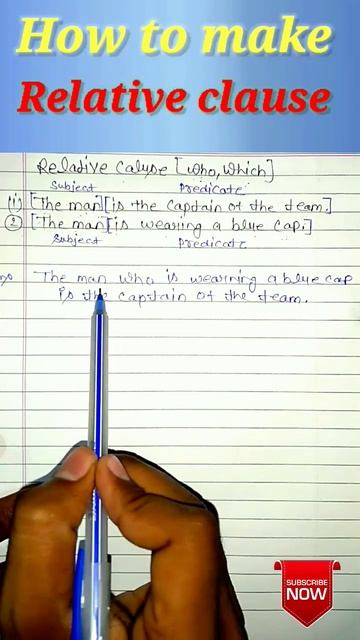 How to make
Relative clause
Relative Calyse [who, which]
Subject Predicate
(1) [The man][is the Captain of the team.]
(2) [The man][is wearing a blue Cap.]
Subject Predicate
The man who is wearning a blue cap
is the captain of the team.
SUBSCRIBE
NOW